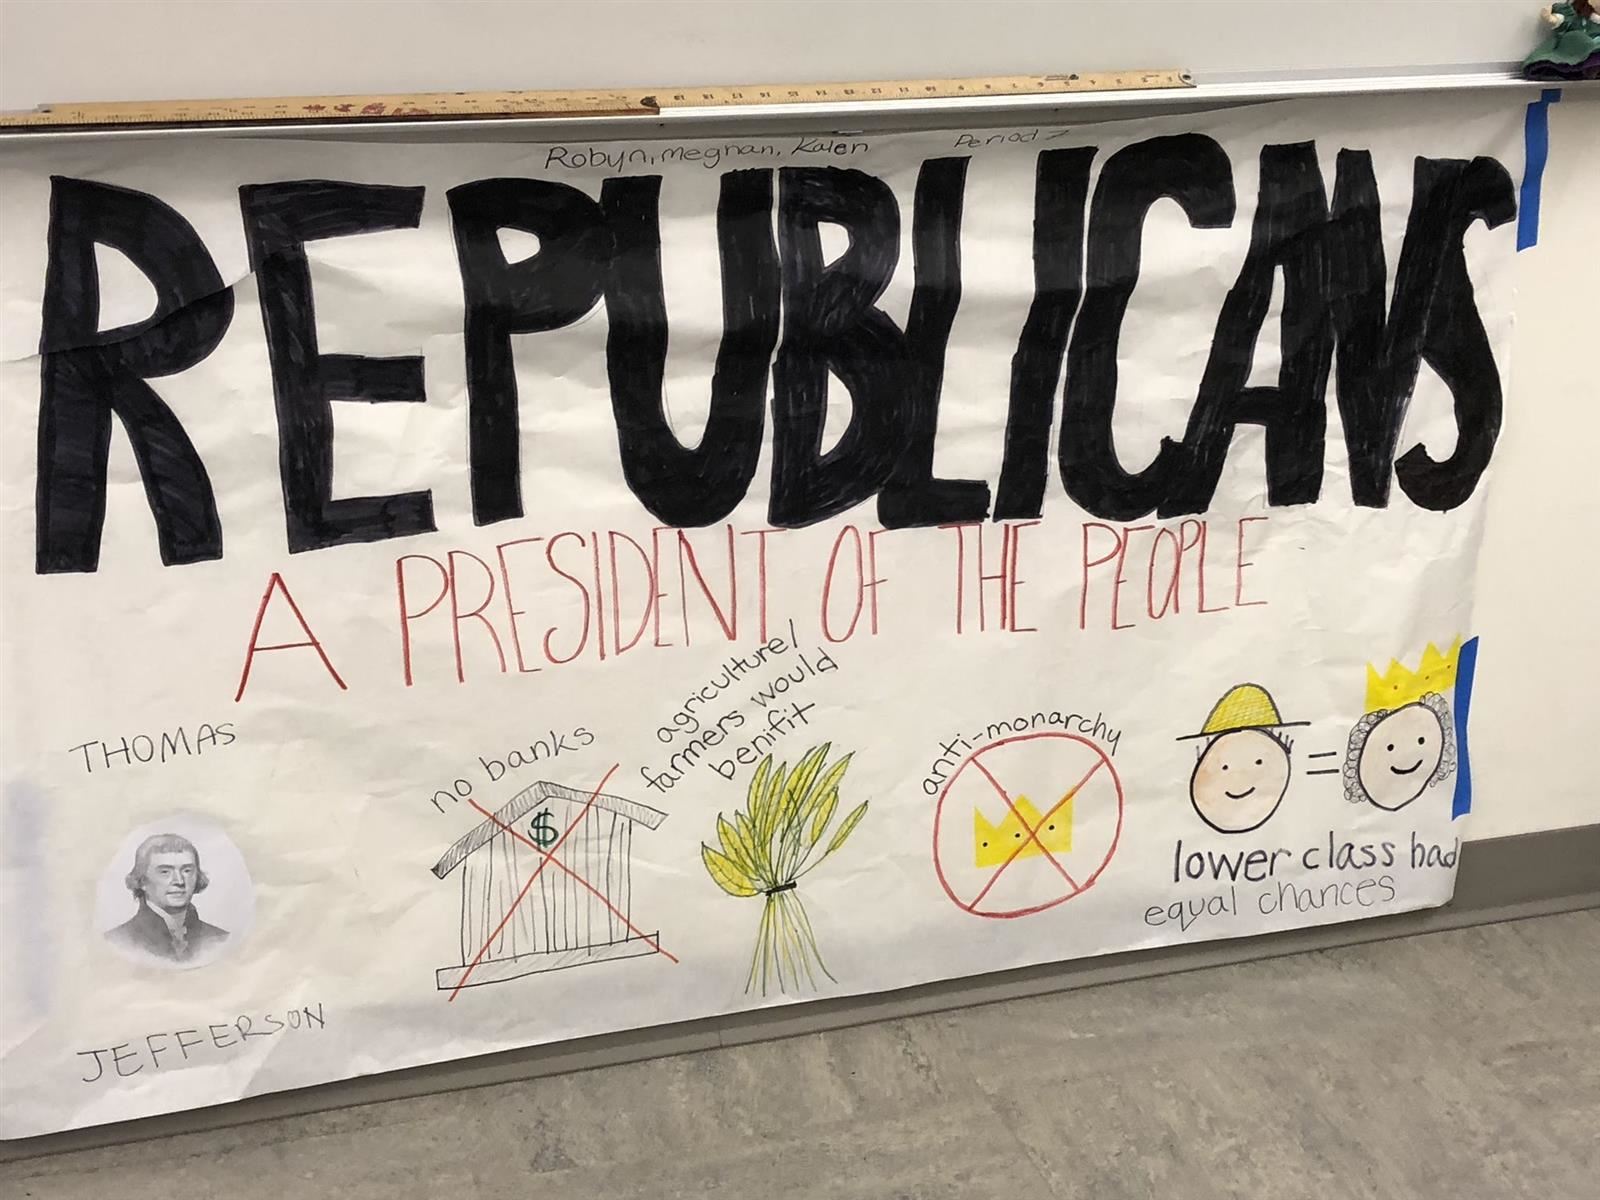 Robyn, Meghan, Kalen Period 7
REPUBLICANS
A PRESIDENT OF THE PEOPLE
THOMAS
JEFFERSON
no banks
$
agriculture/
farmers would
benifit
anti-monarchy
=
lower class had
equal chances